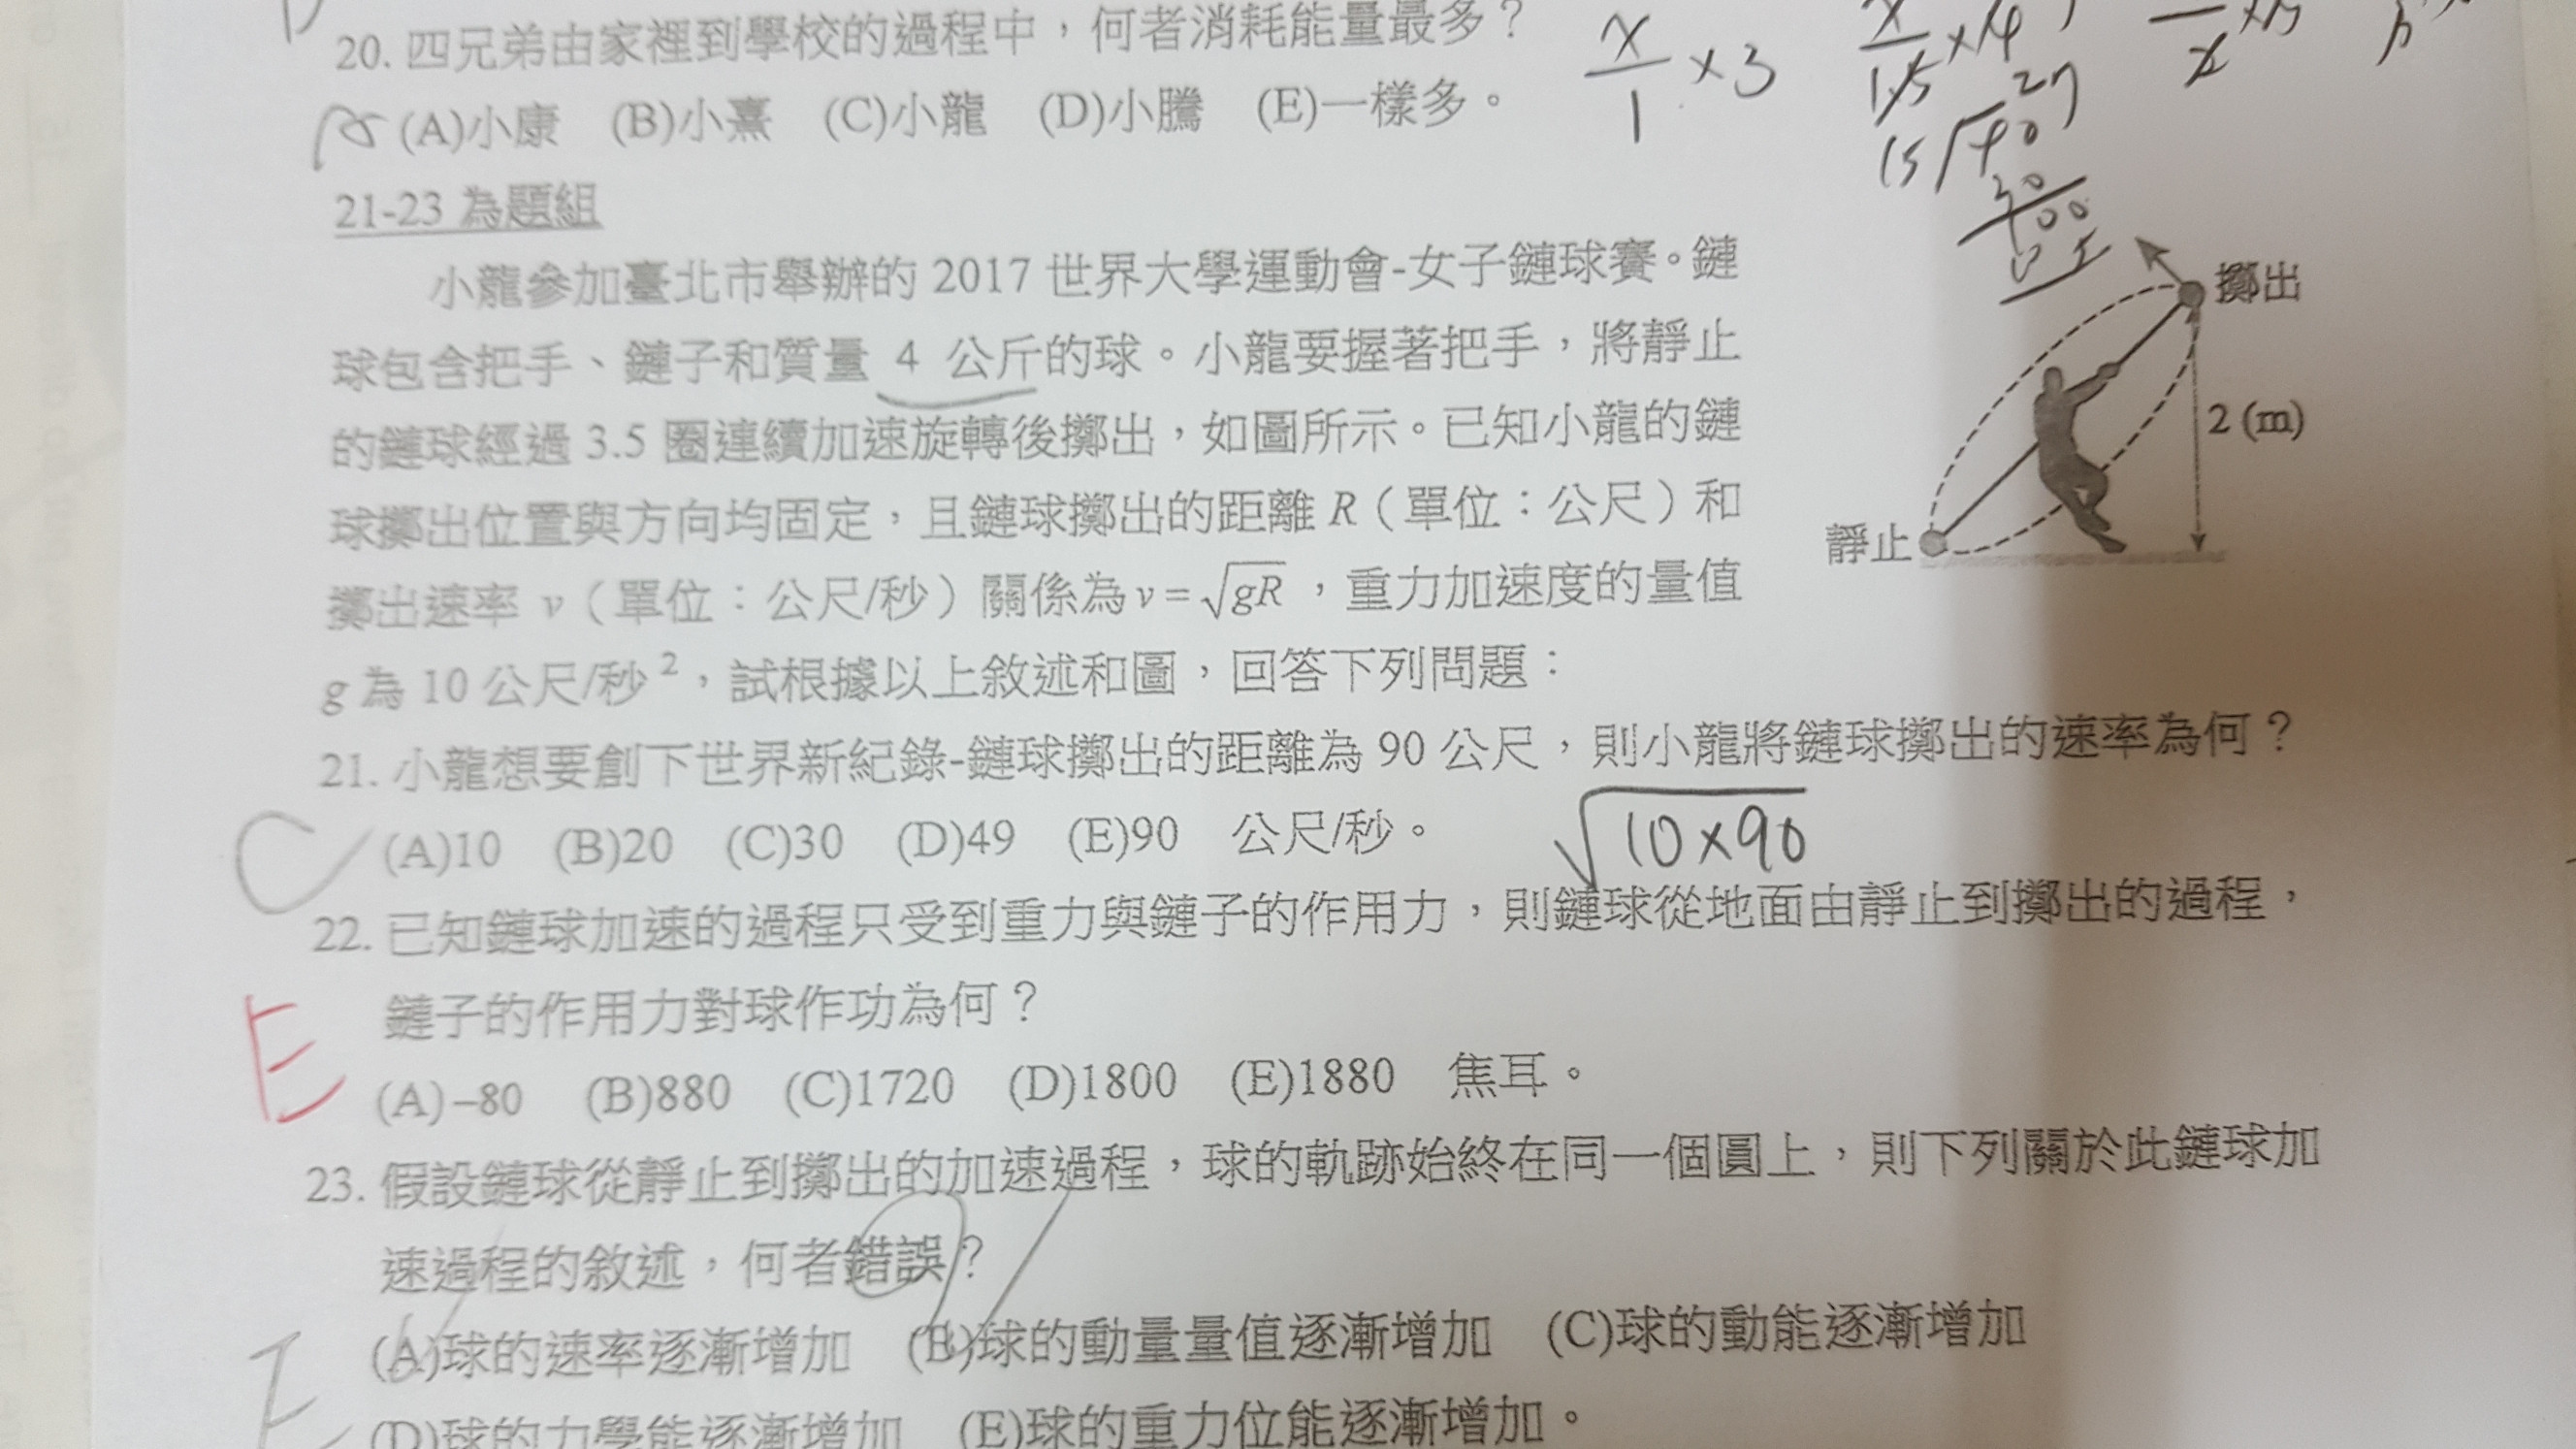 20. 四兄弟由家裡到學校的過程中，何者消耗能量最多？
(A)小康 (B)小熹 (C)小龍 (D)小騰 (E)一樣多。
x/1 ×3
21-23 為題組
小龍參加臺北市舉辦的 2017 世界大學運動會-女子鏈球賽。鏈
球包含把手、鏈子和質量 4 公斤的球。小龍要握著把手，將靜止
的鏈球經過 3.5 圈連續加速旋轉後擲出，如圖所示。已知小龍的鏈
球擲出位置與方向均固定，且鏈球擲出的距離 R（單位：公尺）和
擲出速率 v（單位：公尺/秒）關係為 v=√gR，重力加速度的量值
g 為 10 公尺/秒²，試根據以上敘述和圖，回答下列問題：
擲出
2 (m)
靜止
21. 小龍想要創下世界新紀錄-鏈球擲出的距離為 90 公尺，則小龍將鏈球擲出的速率為何？
C (A)10 (B)20 (C)30 (D)49 (E)90 公尺/秒。 √10×90
22. 已知鏈球加速的過程只受到重力與鏈子的作用力，則鏈球從地面由靜止到擲出的過程，
鏈子的作用力對球作功為何？
E (A)–80 (B)880 (C)1720 (D)1800 (E)1880 焦耳。
23. 假設鏈球從靜止到擲出的加速過程，球的軌跡始終在同一個圓上，則下列關於此鏈球加
速過程的敘述，何者錯誤？
(A)球的速率逐漸增加 (B)球的動量量值逐漸增加 (C)球的動能逐漸增加
(D)球的力學能逐漸增加 (E)球的重力位能逐漸增加。